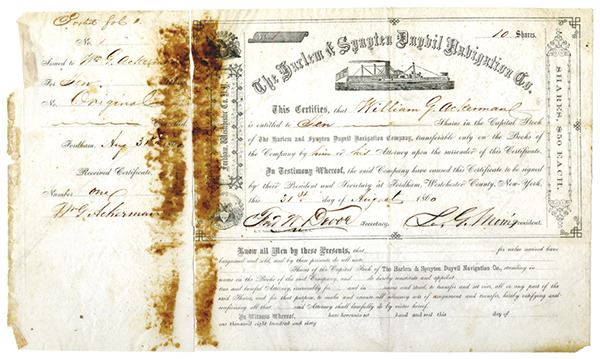 No. 1
Issued to Wm G. Ackerman
For Ten
No. Original
Fordham, Aug 31st
Received Certificate
Number one
Wm G Ackerman
Fordham, Westchester Co. N.Y.
No. 1
10 Shares.
The Harlem & Spuyten Duyvil Navigation Co.
SHARES, $50 EACH.
This Certifies, that William G. Ackerman
is entitled to Ten Shares in the Capital Stock
of The Harlem and Spuyten Duyvil Navigation Company, transferable only on the Books of
the Company by him or his Attorney upon the surrender of this Certificate.
In Testimony Whereof, the said Company have caused this Certificate to be signed
by their President and Secretary at Fordham, Westchester County, New-York,
this 31st day of August 1860
Secretary.
L. G. Morris President.
Know all Men by these Presents, that for value received have
bargained and sold, and by these presents do sell unto
Shares of the Capital Stock of The Harlem & Spuyten Duyvil Navigation Co., standing in
name on the Books of the said Company, and do hereby constitute and appoint
true and lawful Attorney, irrevocably for and in name and stead, to transfer and set over, all or any part of the
said Shares, and for that purpose, to make and execute all necessary acts of assignment and transfer, hereby ratifying and
confirming all that said Attorney shall lawfully do by virtue hereof.
In Witness Whereof, have hereunto set hand and seal this day of
one thousand eight hundred and sixty